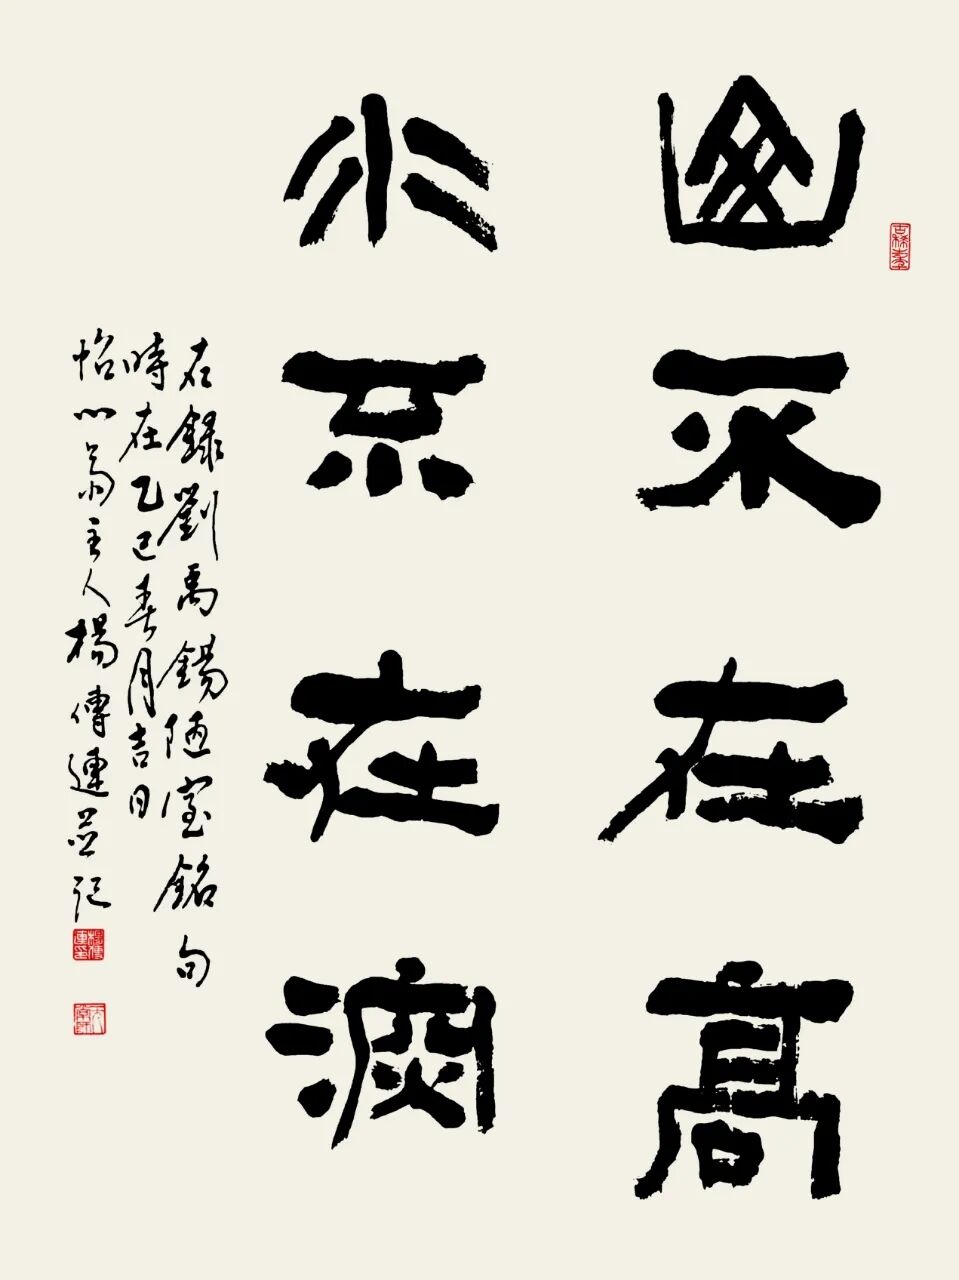 山不在高
水不在深
右録劉禹錫陋室銘句
時在乙巳春月吉日
怡心齋主人楊傳連並記
楊傳連印